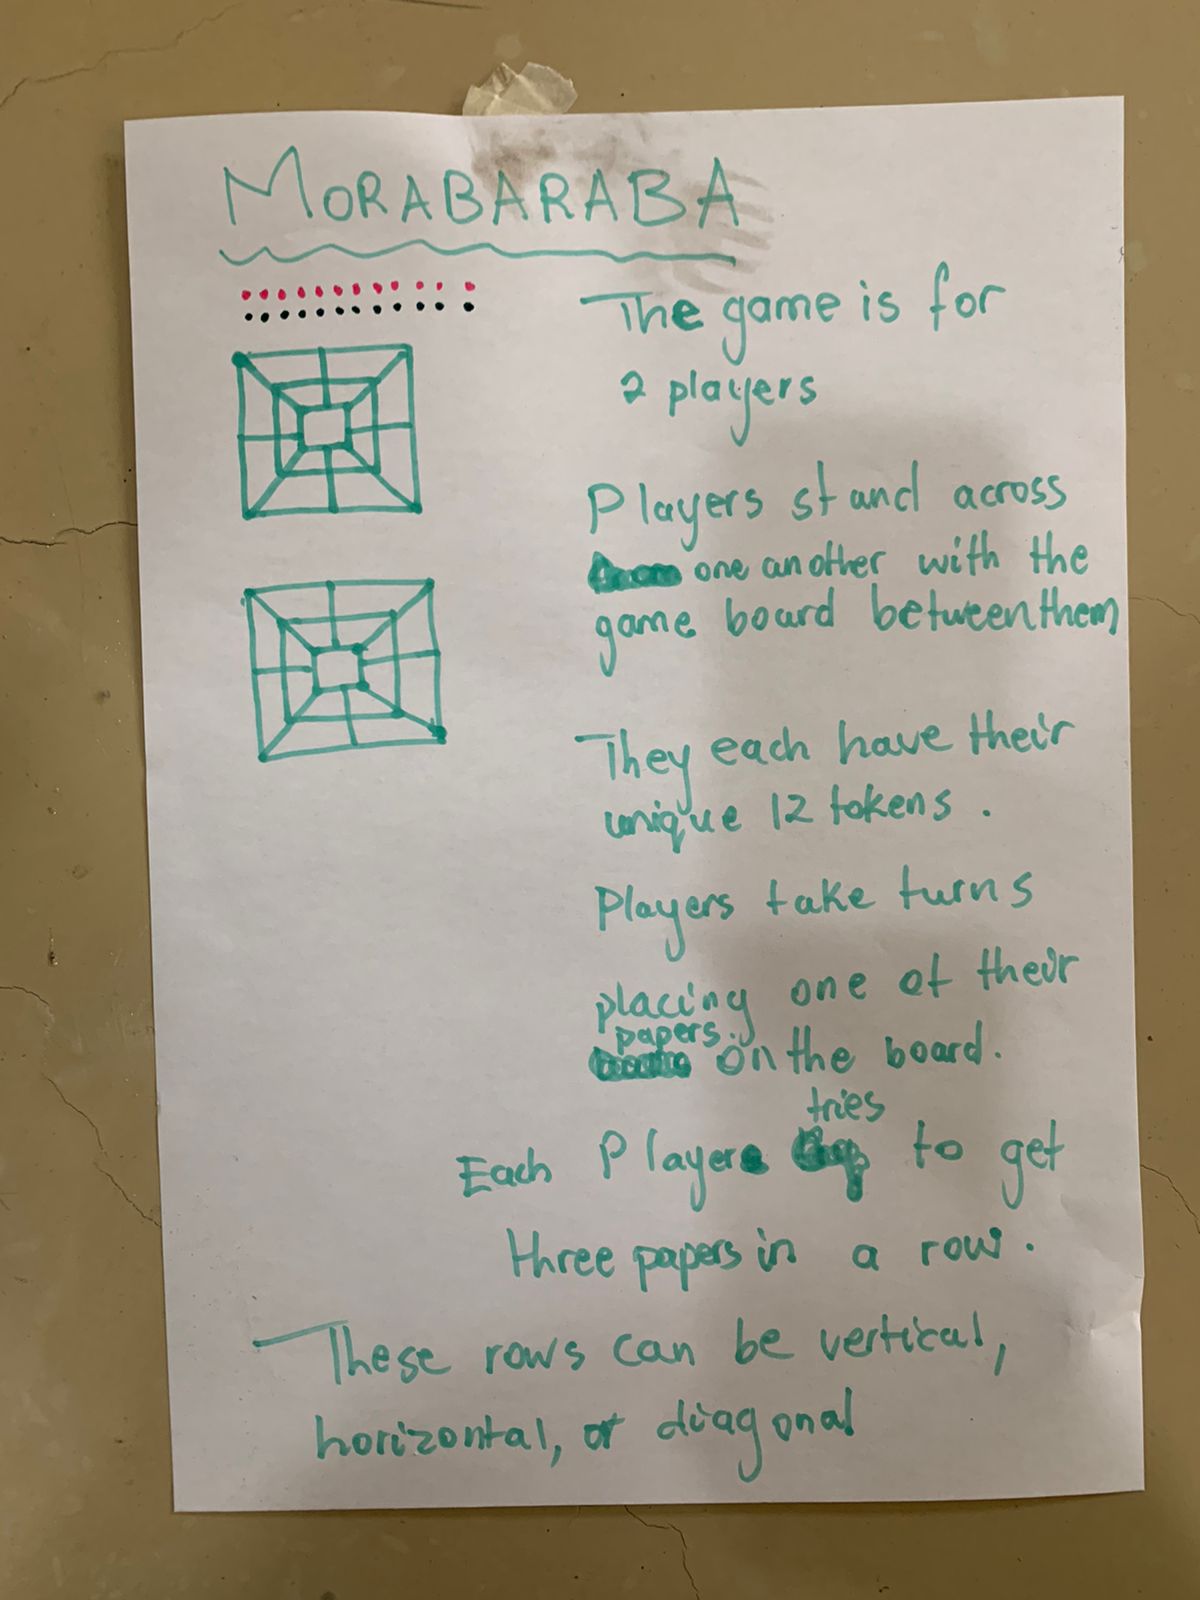 MORABARABA
The game is for
2 players
Players stand across
one another with the
game board between them
They each have their
unique 12 tokens.
Players take turns
placing one of their
papers.
on the board.
tries
Each Player to get
three papers in a row.
These rows can be vertical,
horizontal, or diagonal